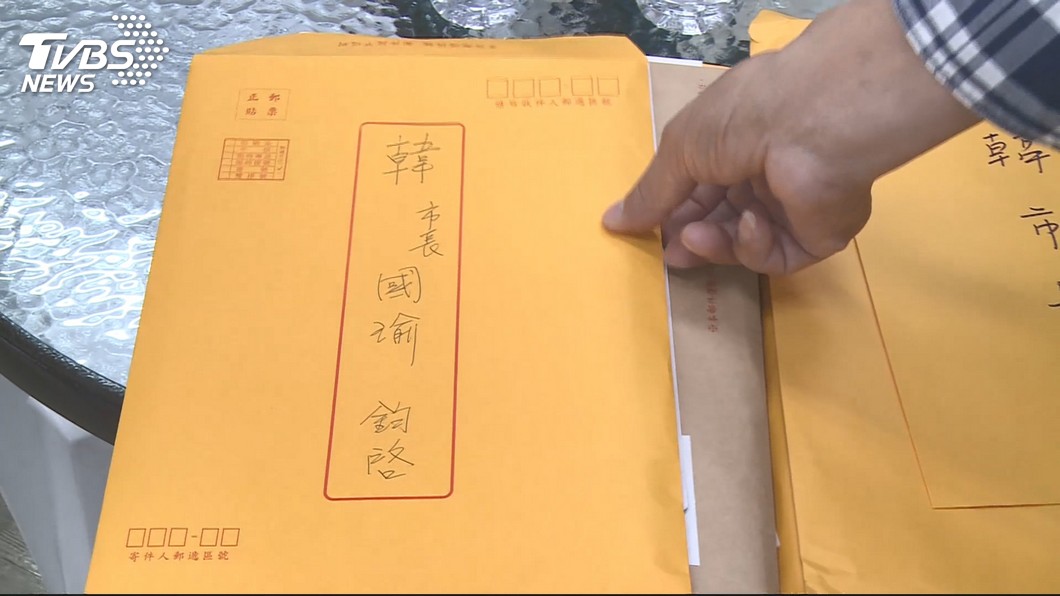 TVBS
NEWS
正 郵
貼 票
請寫收件人郵遞區號
韓市長國瑜 鈞啓
寄件人郵遞區號
韓市